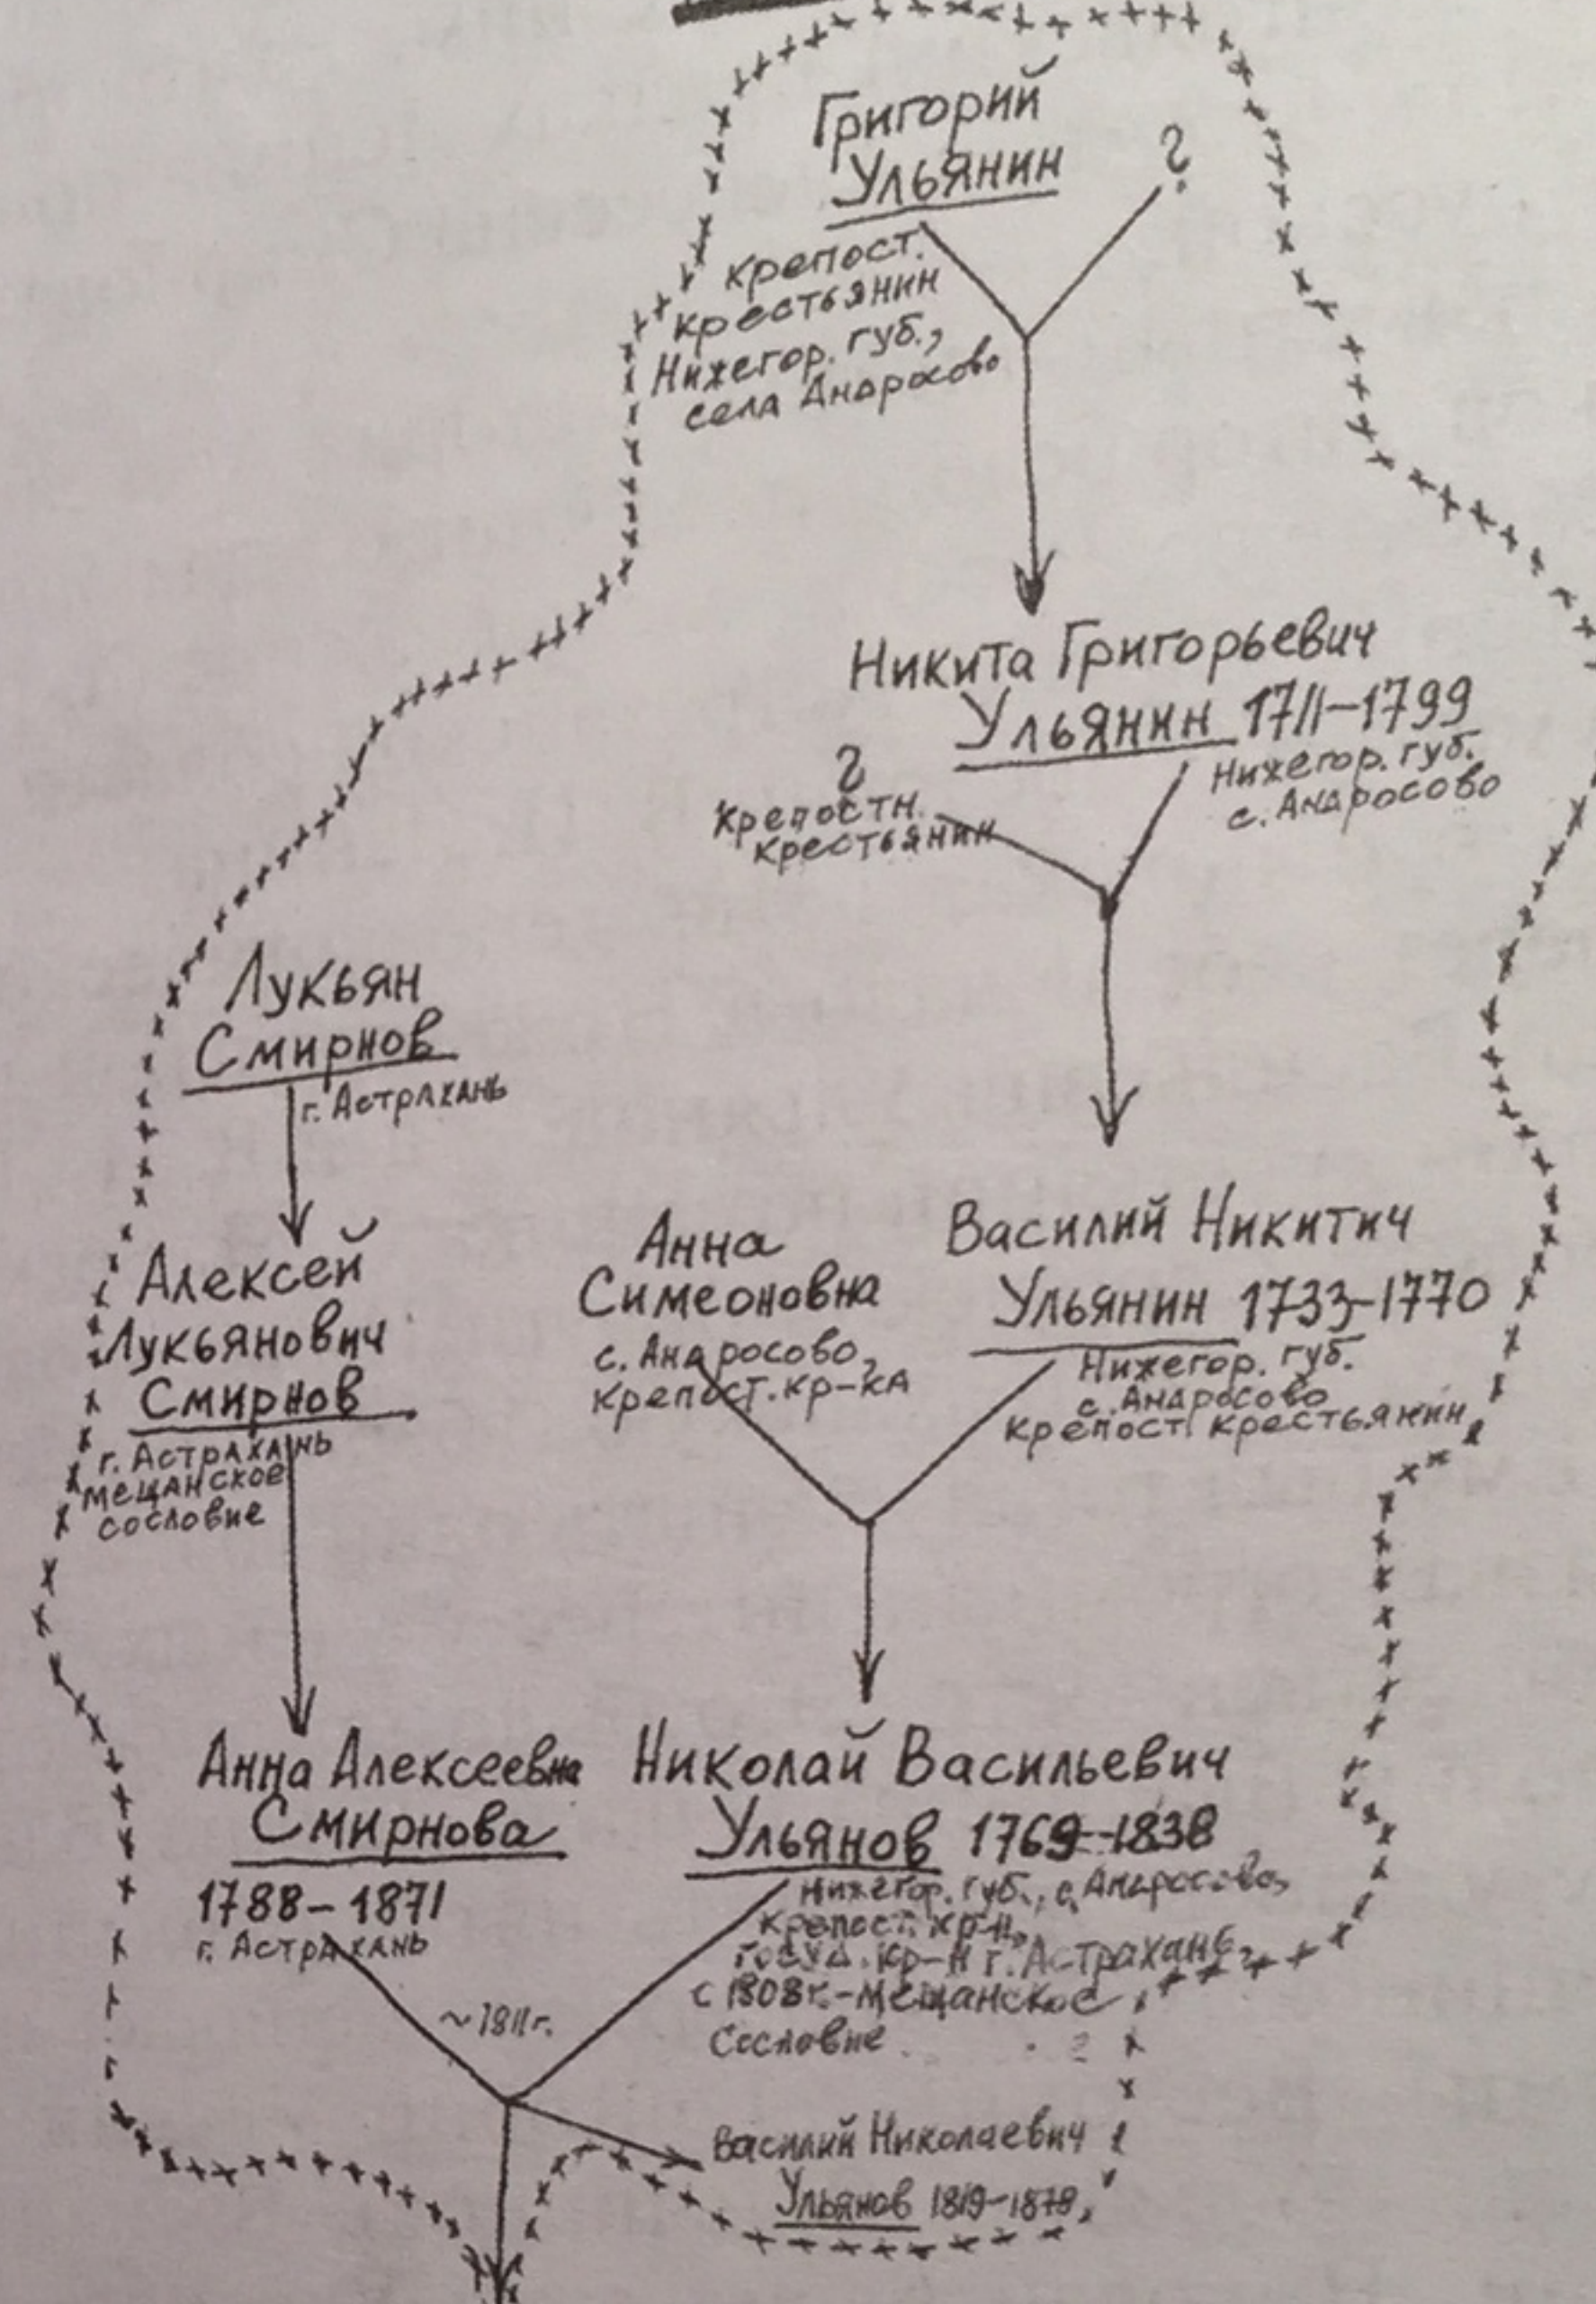 Григорий
Ульянин
?
крепост.
крестьянин
Нижегор. губ.,
села Андросово
Никита Григорьевич
Ульянин 1711-1799
Нижегор. губ.
с. Андросово
?
крепостн.
крестьянин
Лукьян
Смирнов
г. Астрахань
Алексей
Лукьянович
Смирнов
г. Астрахань
мещанское
сословие
Анна
Симеоновна
с. Андросово,
крепост. кр-ка
Василий Никитич
Ульянин 1733-1770
Нижегор. губ.
с. Андросово
крепост. крестьянин
Анна Алексеевна
Смирнова
1788-1871
г. Астрахань
Николай Васильевич
Ульянов 1769-1838
Нижегор. губ., с. Андросово,
крепост. кр-н,
госуд. кр-н г. Астрахань,
с 1808г.-мещанское
сословие
~1811г.
Василий Николаевич
Ульянов 1819-1878